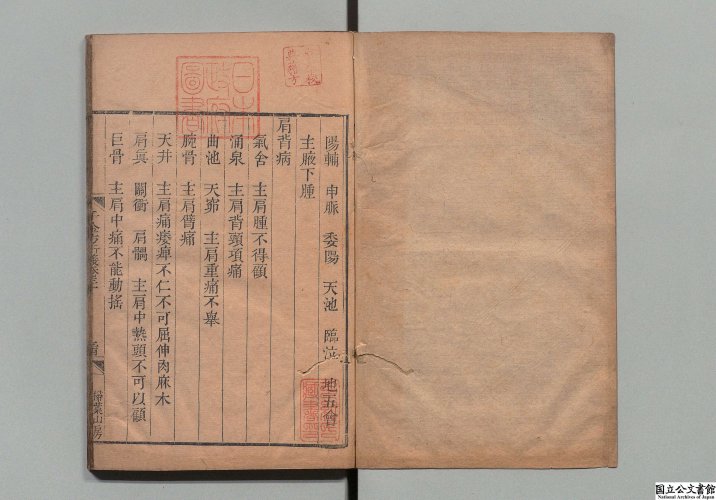 陽輔　申脈　委陽　天池　臨泣　地五會
主腋下腫
肩背病
氣舍　主肩腫不得顧
涌泉　主肩背頸項痛
曲池　天窌　主肩重痛不舉
腕骨　主肩臂痛
天井　主肩痛痿痺不仁不可屈伸肉麻木
肩貞　關衝　肩髃　主肩中熱頭不可以顧
巨骨　主肩中痛不能動搖
掃葉山房
日本政府圖書
国立公文書館
National Archives of Japan